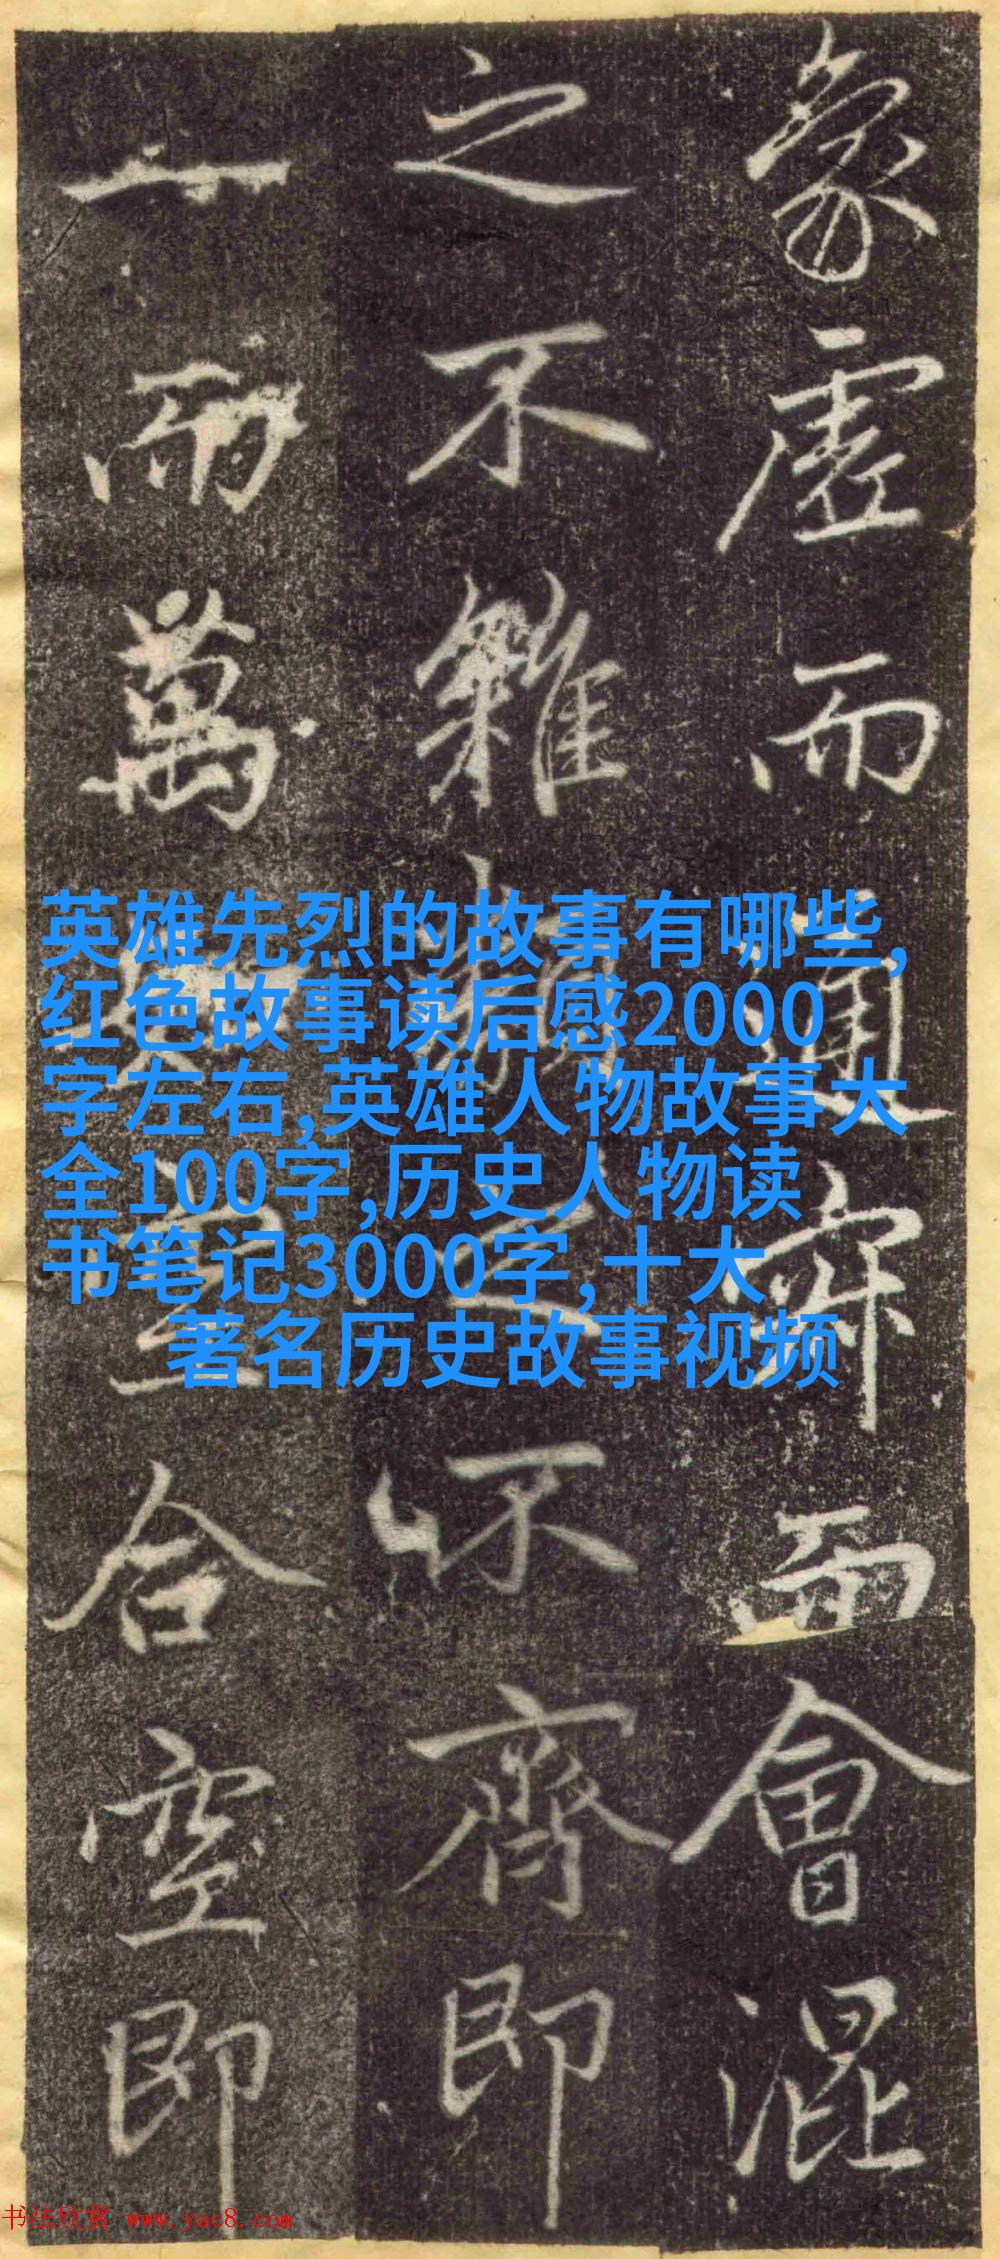 象虛而通而會混
之不雜之不齊即
一而萬合空即
英雄先烈的故事有哪些,
红色故事读后感2000
字左右,英雄人物故事大
全100字,历史人物读
书笔记3000字,十大
著名历史故事视频
书法欣赏 www.yac8.com